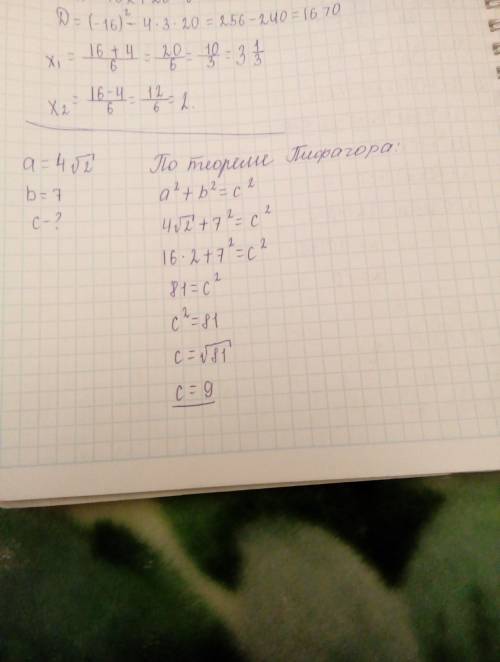 D = (-16)² - 4·3·20 = 256 - 240 = 16 > 0
x₁ = (16+4)/6 = 20/6 = 10/3 = 3 1/3
x₂ = (16-4)/6 = 12/6 = 2.
a = 4√2 По теореме Пифагора:
b = 7 a² + b² = c²
c - ? 4√2 + 7² = c²
16·2 + 7² = c²
81 = c²
c² = 81
c = √81
c = 9